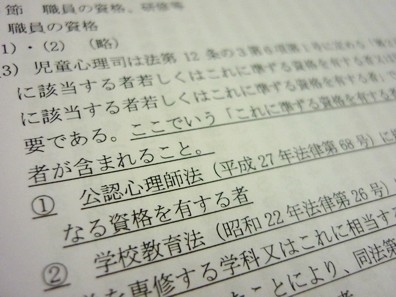 節 職員の資格、研修等
職員の資格
1)・(2) (略)
3) 児童心理司は法第 12 条の3第6項第1号に定める
に該当する者若しくはこれに準ずる資格を有する者
に該当する者若しくはこれに準ずる資格を有する者
要である。ここでいう「これに準ずる資格を有する
者が含まれること。
① 公認心理師法(平成 27 年法律第 68 号)に
なる資格を有する者
② 学校教育法(昭和 22 年法律第 26 号)
を専修する学科又はこれに相当する
たことにより、同法第